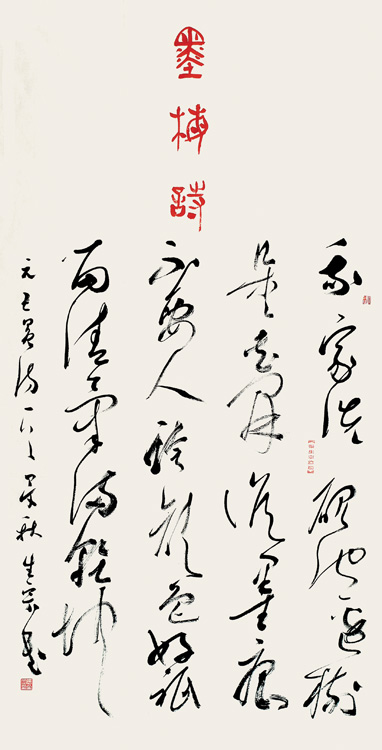 墨梅詩
我家洗硯池邊樹
朵朵花開淡墨痕
不要人誇顏色好祇
留清氣滿乾坤
元王冕詩一首 秋